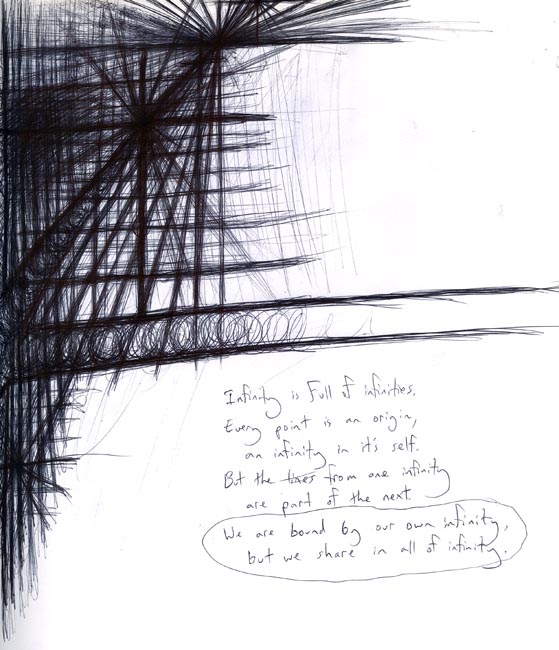 Infinity is full of infinities.
Every point is an origin,
an infinity in it's self.
But the lines from one infinity
are part of the next
We are bound by our own infinity,
but we share in all of infinity.